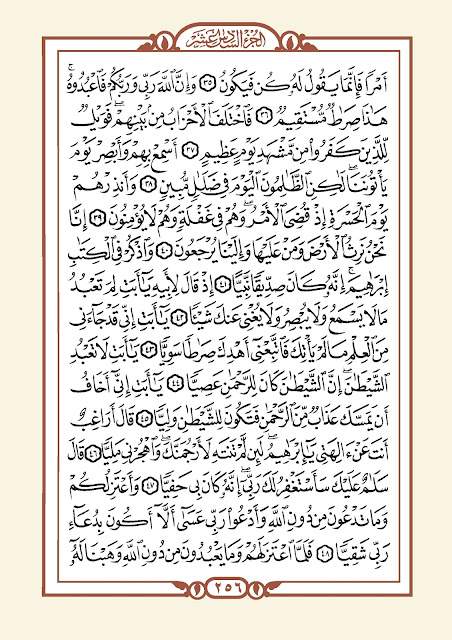 الجزء السادس عشر
أَمْرًا فَإِنَّمَا يَقُولُ لَهُۥ كُن فَيَكُونُ ٣٥ وَإِنَّ ٱللَّهَ رَبِّى وَرَبُّكُمْ فَٱعْبُدُوهُ ۚ
هَٰذَا صِرَٰطٌ مُّسْتَقِيمٌ ٣٦ فَٱخْتَلَفَ ٱلْأَحْزَابُ مِنۢ بَيْنِهِمْ ۖ فَوَيْلٌ
لِّلَّذِينَ كَفَرُوا۟ مِن مَّشْهَدِ يَوْمٍ عَظِيمٍ ٣٧ أَسْمِعْ بِهِمْ وَأَبْصِرْ يَوْمَ
يَأْتُونَنَا ۖ لَٰكِنِ ٱلظَّٰلِمُونَ ٱلْيَوْمَ فِى ضَلَٰلٍ مُّبِينٍ ٣٨ وَأَنذِرْهُمْ
يَوْمَ ٱلْحَسْرَةِ إِذْ قُضِىَ ٱلْأَمْرُ وَهُمْ فِى غَفْلَةٍ وَهُمْ لَا يُؤْمِنُونَ ٣٩ إِنَّا
نَحْنُ نَرِثُ ٱلْأَرْضَ وَمَنْ عَلَيْهَا وَإِلَيْنَا يُرْجَعُونَ ٤٠ وَٱذْكُرْ فِى ٱلْكِتَٰبِ
إِبْرَٰهِيمَ ۚ إِنَّهُۥ كَانَ صِدِّيقًا نَّبِيًّا ٤١ إِذْ قَالَ لِأَبِيهِ يَٰٓأَبَتِ لِمَ تَعْبُدُ
مَا لَا يَسْمَعُ وَلَا يُبْصِرُ وَلَا يُغْنِى عَنكَ شَيْـًٔا ٤٢ يَٰٓأَبَتِ إِنِّى قَدْ جَآءَنِى
مِنَ ٱلْعِلْمِ مَا لَمْ يَأْتِكَ فَٱتَّبِعْنِىٓ أَهْدِكَ صِرَٰطًا سَوِيًّا ٤٣ يَٰٓأَبَتِ لَا تَعْبُدِ
ٱلشَّيْطَٰنَ ۖ إِنَّ ٱلشَّيْطَٰنَ كَانَ لِلرَّحْمَٰنِ عَصِيًّا ٤٤ يَٰٓأَبَتِ إِنِّىٓ أَخَافُ
أَن يَمَسَّكَ عَذَابٌ مِّنَ ٱلرَّحْمَٰنِ فَتَكُونَ لِلشَّيْطَٰنِ وَلِيًّا ٤٥ قَالَ أَرَاغِبٌ
أَنتَ عَنْ ءَالِهَتِى يَٰٓإِبْرَٰهِيمُ ۖ لَئِن لَّمْ تَنتَهِ لَأَرْجُمَنَّكَ ۖ وَٱهْجُرْنِى مَلِيًّا ٤٦ قَالَ
سَلَٰمٌ عَلَيْكَ ۖ سَأَسْتَغْفِرُ لَكَ رَبِّىٓ ۖ إِنَّهُۥ كَانَ بِى حَفِيًّا ٤٧ وَأَعْتَزِلُكُمْ
وَمَا تَدْعُونَ مِن دُونِ ٱللَّهِ وَأَدْعُوا۟ رَبِّى عَسَىٰٓ أَلَّآ أَكُونَ بِدُعَآءِ
رَبِّى شَقِيًّا ٤٨ فَلَمَّا ٱعْتَزَلَهُمْ وَمَا يَعْبُدُونَ مِن دُونِ ٱللَّهِ وَهَبْنَا لَهُۥٓ
٢٥٦